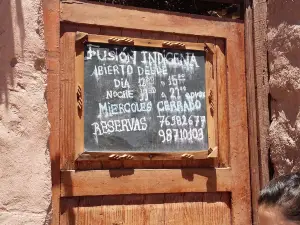 FUSIÓN INDIGENA
ABIERTO DESDE
DIA 12 A 15
NOCHE 19 A 21
MIERCOLES CERRADO
RESERVAS 76982677
98710103